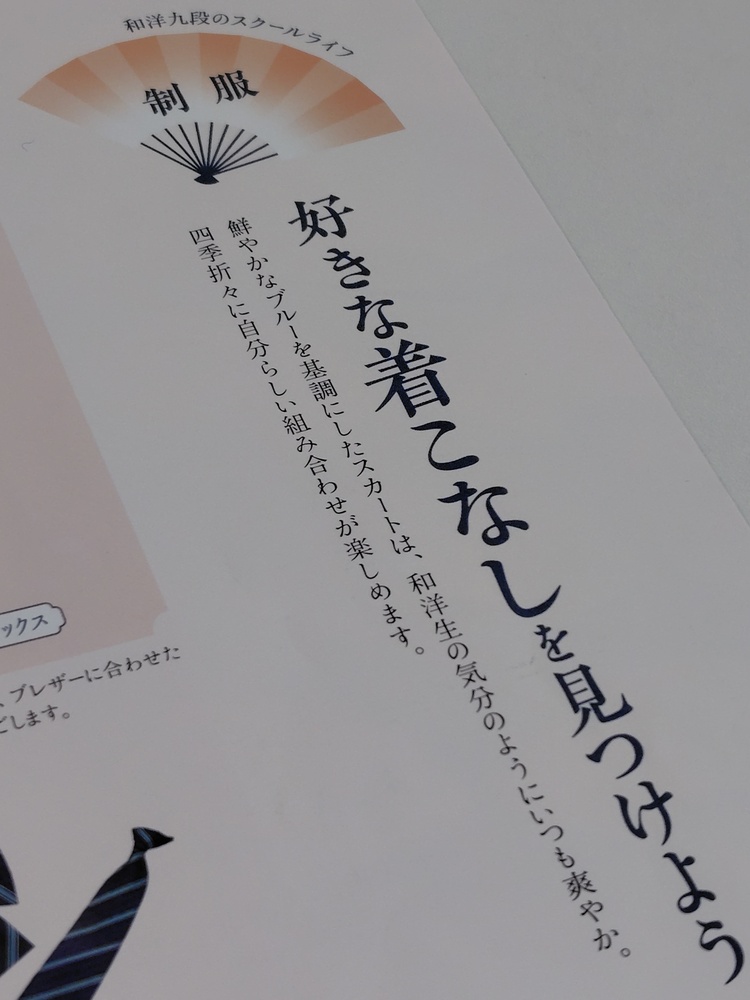 和洋九段のスクールライフ
制服
好きな着こなしを見つけよう
鮮やかなブルーを基調にしたスカートは、和洋生の気分のようにいつも爽やか。
四季折々に自分らしい組み合わせが楽しめます。
ックス
、ブレザーに合わせた
どします。